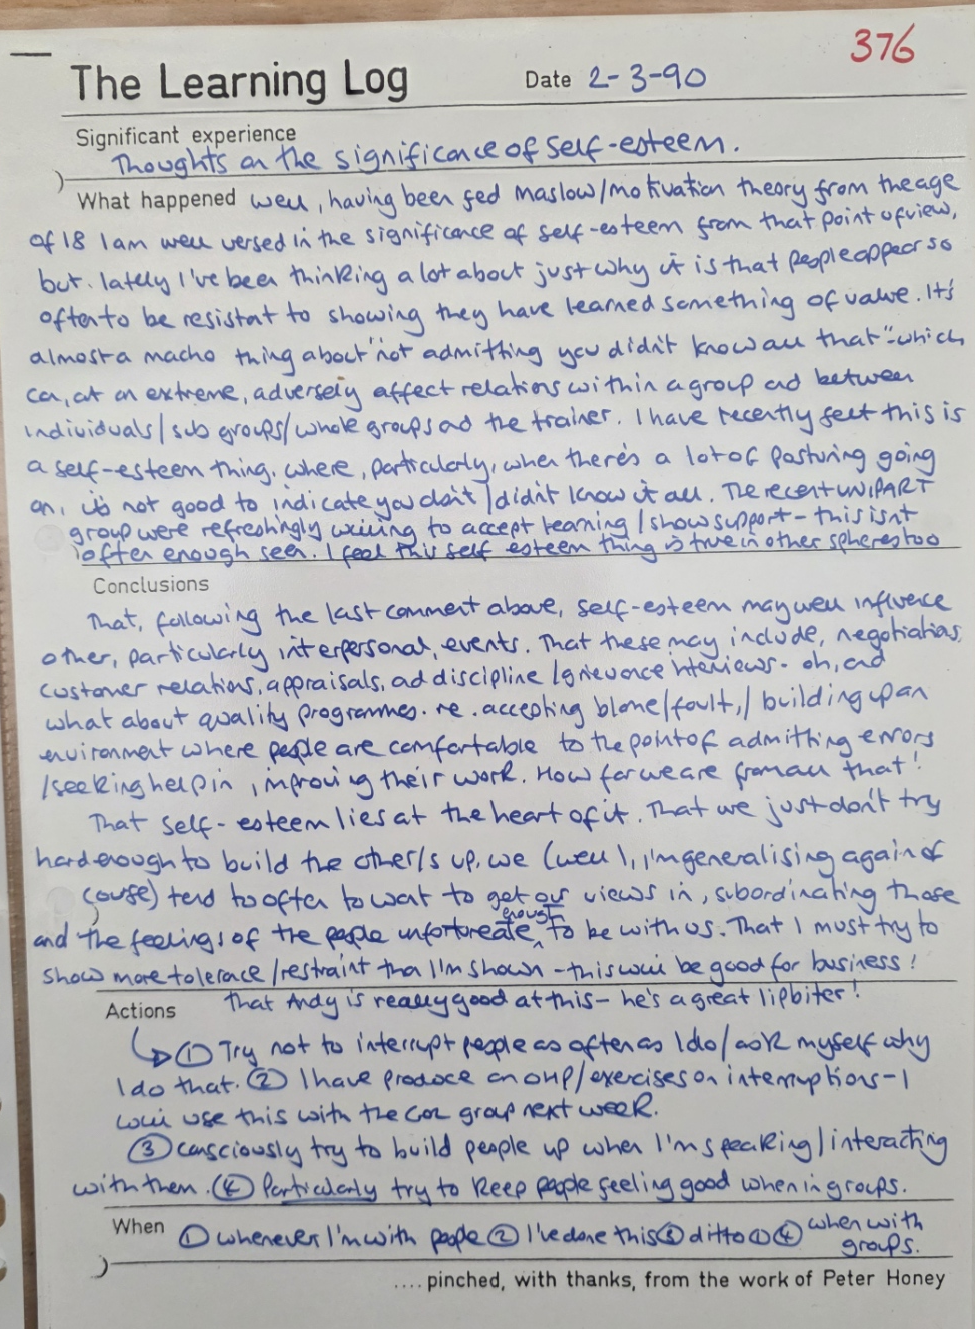 376
The Learning Log Date 2-3-90
Significant experience
Thoughts on the significance of self-esteem.
What happened Well, having been fed Maslow/motivation theory from the age
of 18 I am well versed in the significance of self-esteem from that point of view,
but lately I've been thinking a lot about just why it is that people appear so
often to be resistat to showing they have learned something of value. It's
almost a macho thing about "not admitting you didn't know all that" - which
can, at an extreme, adversely affect relations within a group and between
individuals/sub groups/whole groups and the trainer. I have recently felt this is
a self-esteem thing, where, particularly, when there's a lot of posturing going
on, it's not good to indicate you don't/didn't know it all. The recent UNIPART
group were refreshingly willing to accept learning/show support - this isn't
often enough seen. I feel this self esteem thing is true in other spheres too
Conclusions
That, following the last comment above, self-esteem may well influence
other, particularly interpersonal, events. That these may include, negotiations,
customer relations, appraisals, and discipline/grievance interviews - oh, and
what about quality programmes. re. accepting blame/fault,/building up an
environment where people are comfortable to the point of admitting errors
/seeking help in improving their work. How far we are from all that!
That self-esteem lies at the heart of it. That we just don't try
hard enough to build the other/s up, we (well, I'm generalising again of
course) tend to often to want to get our views in, subordinating those
and the feelings of the people unfortunate enough to be with us. That I must try to
show more tolerance/restraint than I'm shown - this will be good for business!
That Andy is really good at this - he's a great lipbiter!
Actions
① Try not to interrupt people as often as I do/ask myself why
I do that. ② I have produce an OHP/exercises on interruptions - I
will use this with the group next week.
③ Consciously try to build people up when I'm speaking/interacting
with them. ④ Particularly try to keep people feeling good when in groups.
When ① whenever I'm with people ② I've done this ③ ditto ① ④ when with
groups.
.... pinched, with thanks, from the work of Peter Honey